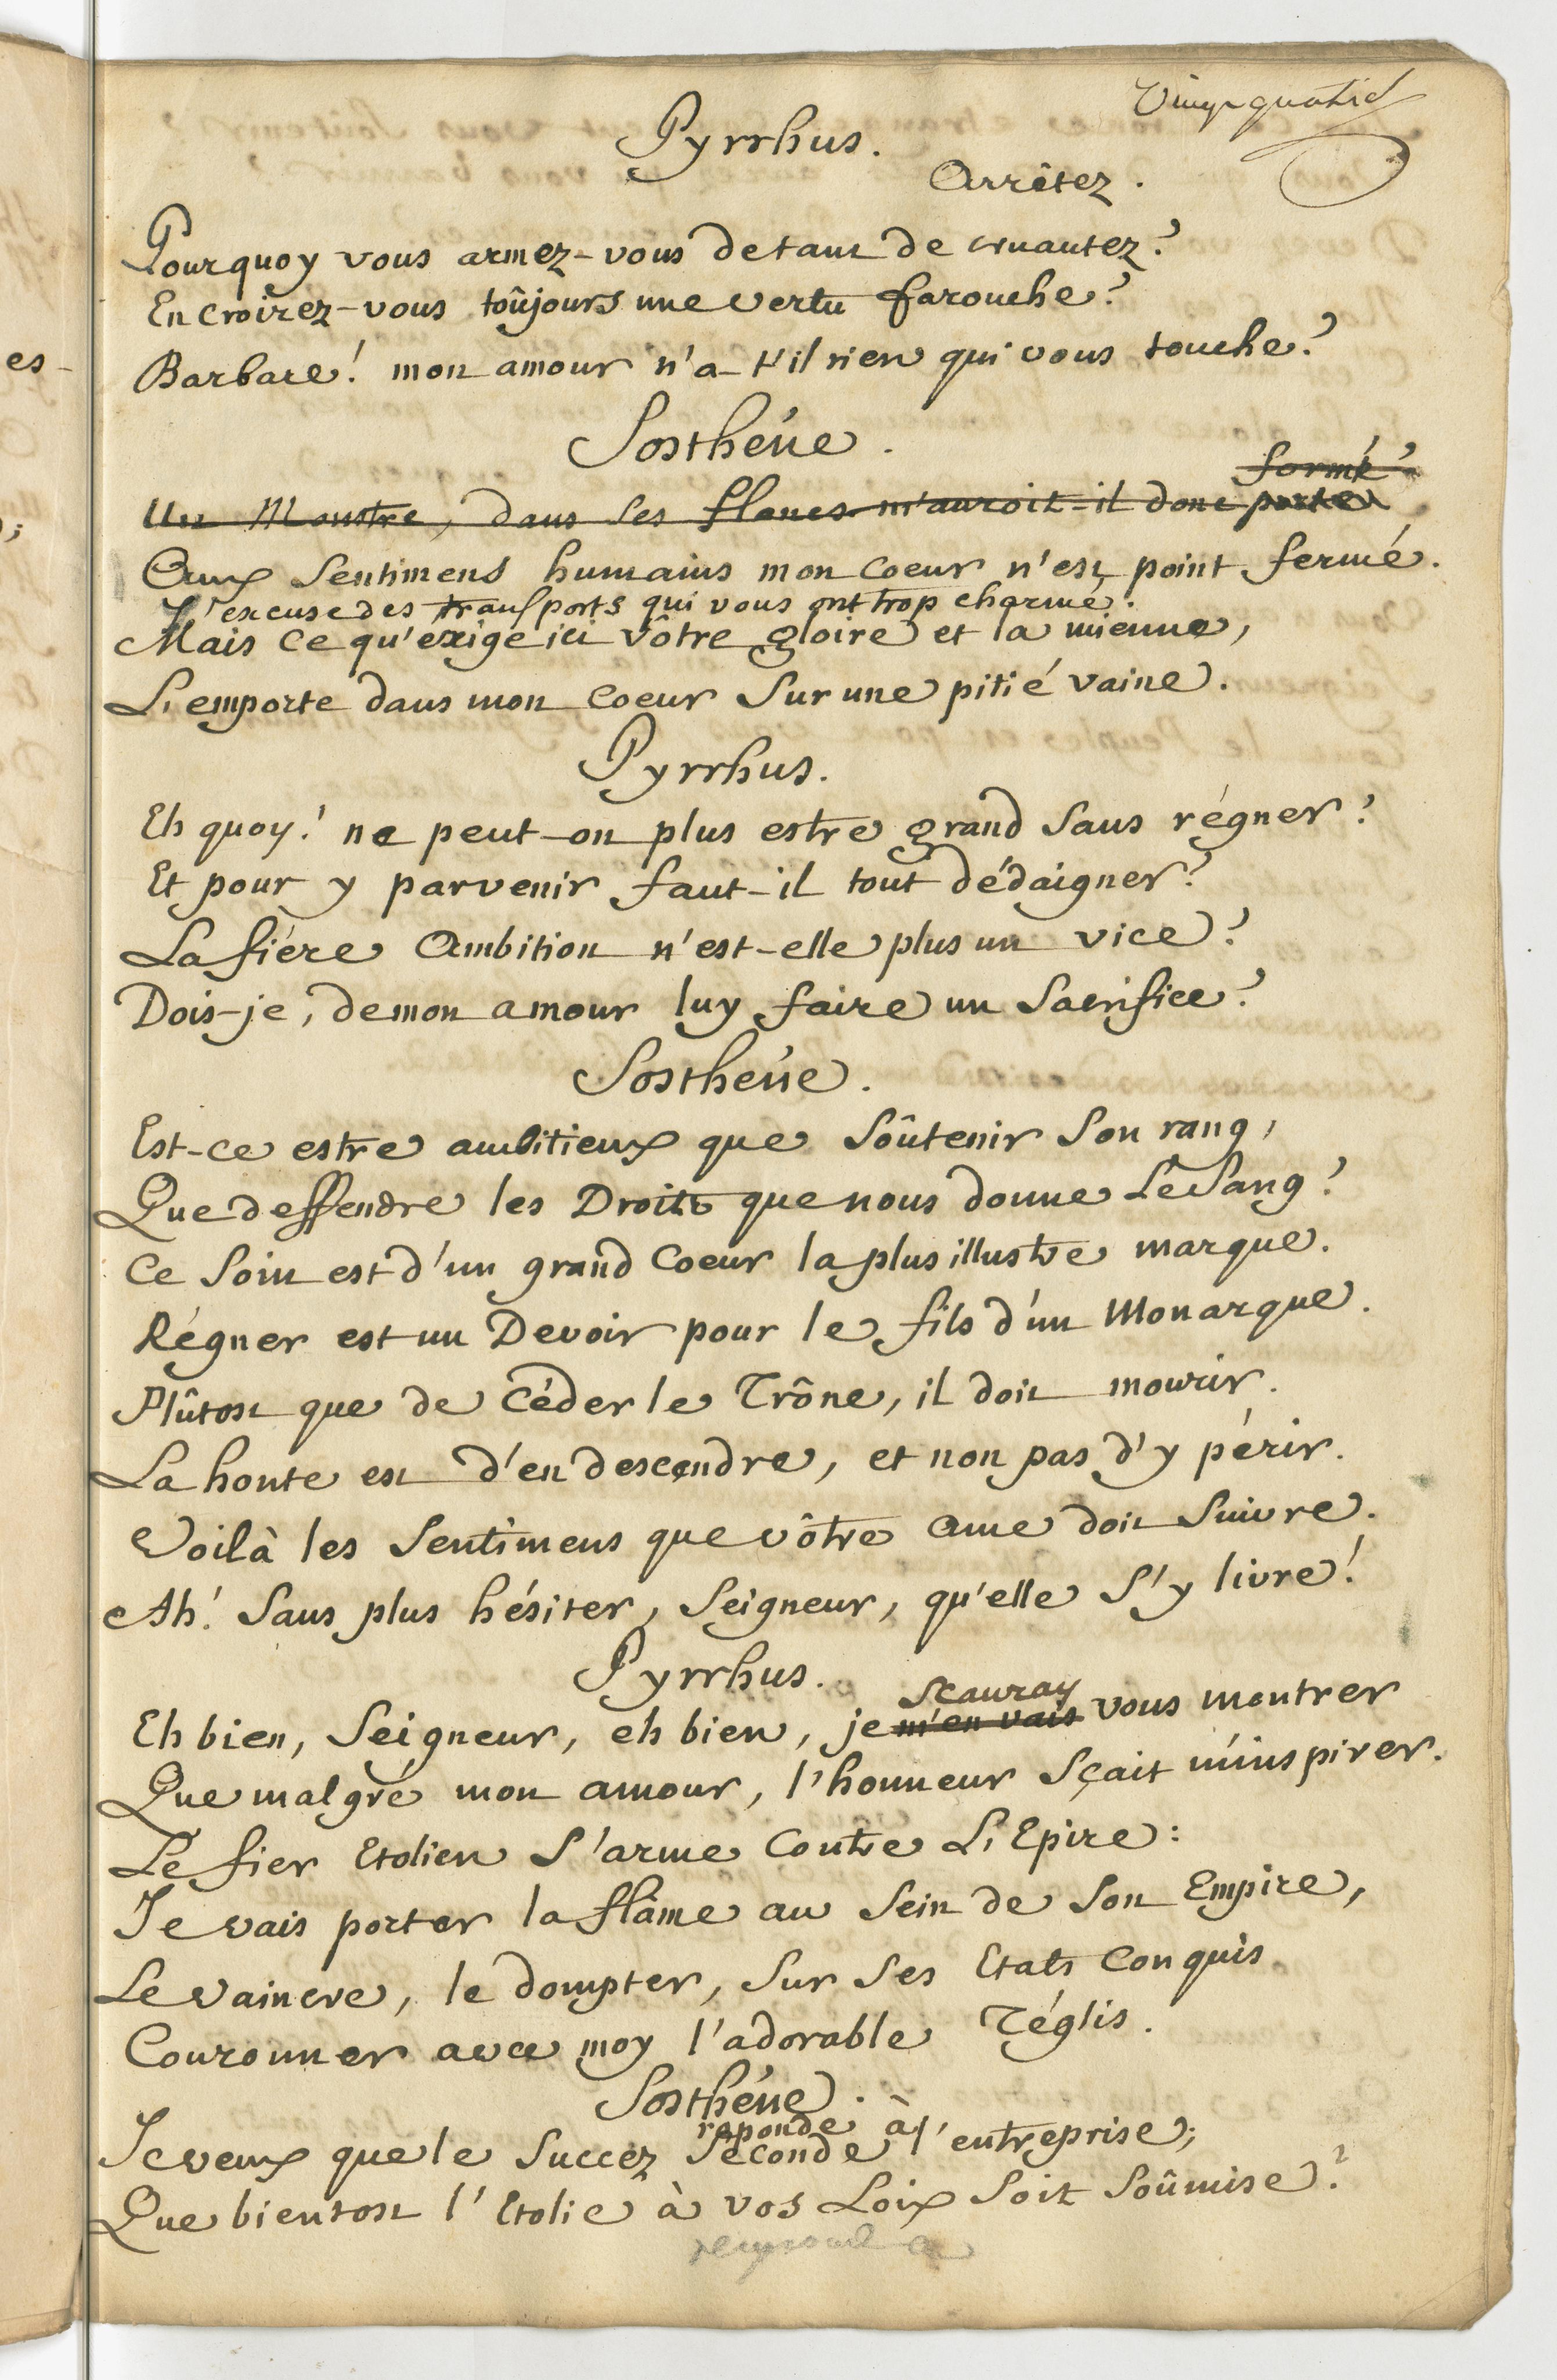 Vingt quatrie
Pyrrhus.
Arrêtez.
Pourquoy vous armez-vous de tant de cruautez?
En croirez-vous toûjours une vertu farouche?
Barbare! mon amour n'a-t'il rien qui vous touche?
Sosthéne.
formé?
Un Monstre, dans ses flancs m'auroit-il donc porté
Aux Sentimens humains mon coeur n'est point fermé.
J'excuse des transports qui vous ont trop charmé.
Mais ce qu'exige ici vôtre gloire et la mienne,
L'emporte dans mon Coeur Sur une pitié vaine.
Pyrrhus.
Eh quoy! ne peut-on plus estre grand Sans régner?
Et pour y parvenir faut-il tout dédaigner?
La fiére Ambition n'est-elle plus un vice?
Dois-je, de mon amour luy faire un Sacrifice?
Sosthéne.
Est-ce estre ambitieux que Soûtenir Son rang,
Que deffendre les Droits que nous donne Le Sang?
Ce Soin est d'un grand Coeur la plus illustre marque.
Régner est un Devoir pour le fils d'un Monarque.
Plûtost que de Céder le Trône, il doit mourir.
La honte est d'en descendre, et non pas d'y périr.
Voilà les Sentimens que vôtre Ame doit Suivre.
Ah! Sans plus hésiter, Seigneur, qu'elle S'y livre!
Pyrrhus.
Sçauray
Eh bien, Seigneur, eh bien, je m'en vais vous montrer
Que malgré mon amour, l'honneur Sçait m'inspirer.
Le fier Etolien S'arme Contre L'Epire:
Je vais porter la flâme au Sein de Son Empire,
Le vaincre, le dompter, Sur Ses Etats Conquis
Couronner avec moy l'adorable Téglis.
Sosthéne.
reponde à
Je veux que le Succez Seconde l'entreprise;
Que bientost l'Etolie à vos Loix Soit Soûmise?